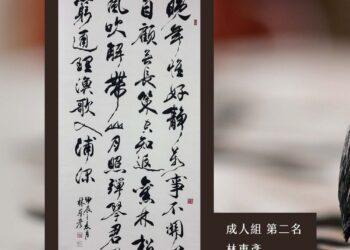 晚年惟好靜萬事不關
自顧無長策空知返舊林松
風吹解帶山月照彈琴君
窮通理漁歌入浦深
成人組 第二名